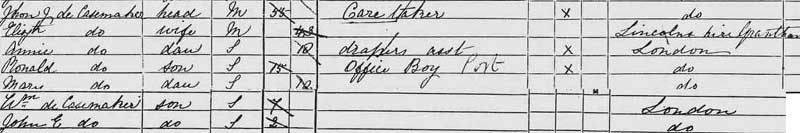 Jhon J de Casemaker head M 54 Care taker x do
Elizth do wife M 43 Lincolnshire Grantham
Annie do dau S 18 drapers asst x London
Ronald do son S 15 Office Boy Port x do
Mary do dau S 12 " do
Wm de Casemaker son S 7 London
John E do do S 2 do